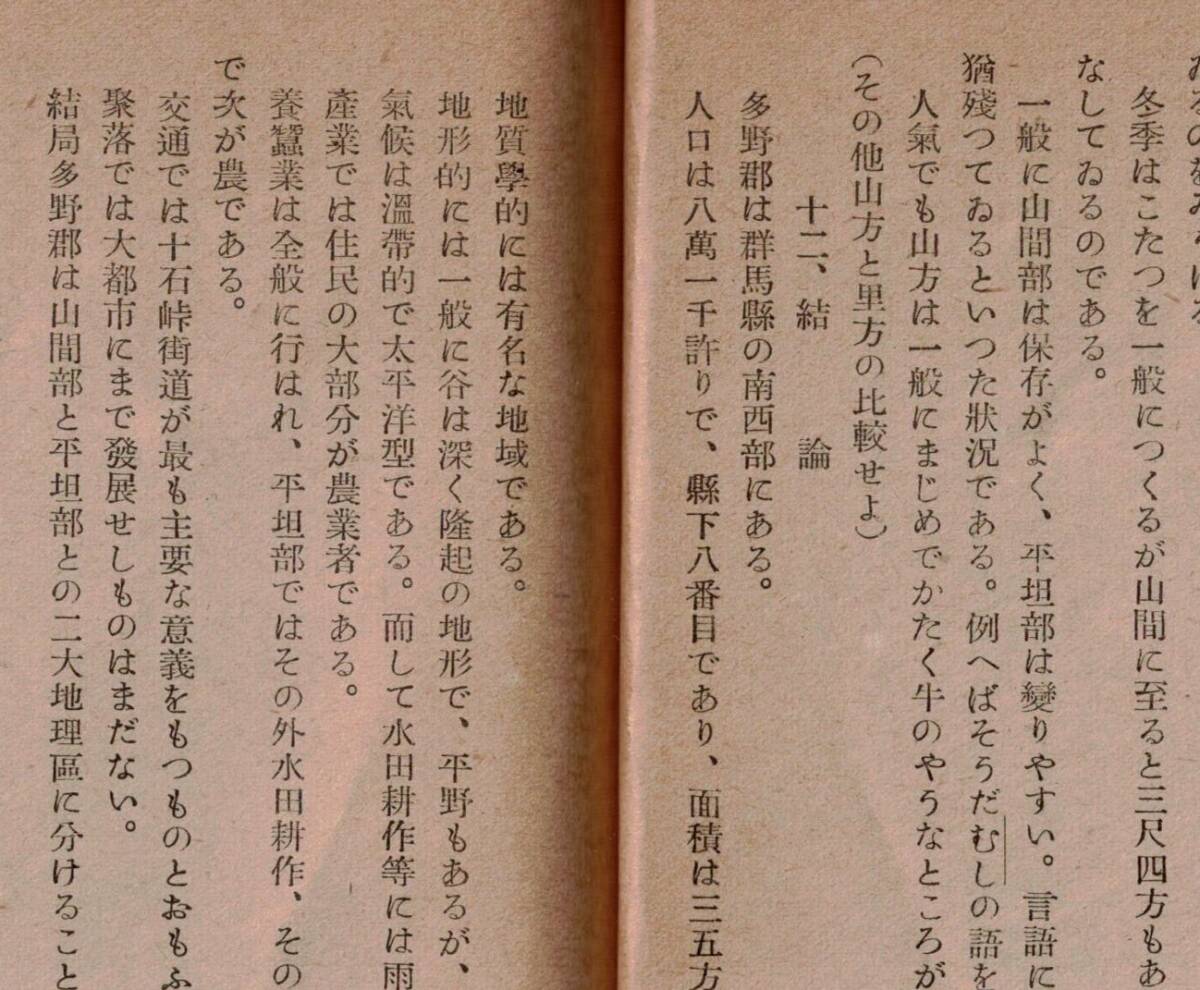 冬季はこたつを一般につくるが山間に至ると三尺四方もあ
なしてゐるのである。
一般に山間部は保存がよく、平坦部は變りやすい。言語に
猶殘つてゐるといつた狀況である。例へばそうだむしの語を
人氣でも山方は一般にまじめでかたく牛のやうなところが
(その他山方と里方の比較せよ)
十二、結論
多野郡は群馬縣の南西部にある。
人口は八萬一千許りで、縣下八番目であり、面積は三五方
地質學的には有名な地域である。
地形的には一般に谷は深く隆起の地形で、平野もあるが、
氣候は溫帶的で太平洋型である。而して水田耕作等には雨
產業では住民の大部分が農業者である。
養蠶業は全般に行はれ、平坦部ではその外水田耕作、その
で次が農である。
交通では十石峠街道が最も主要な意義をもつものとおもふ
聚落では大都市にまで發展せしものはまだない。
結局多野郡は山間部と平坦部との二大地理區に分けること